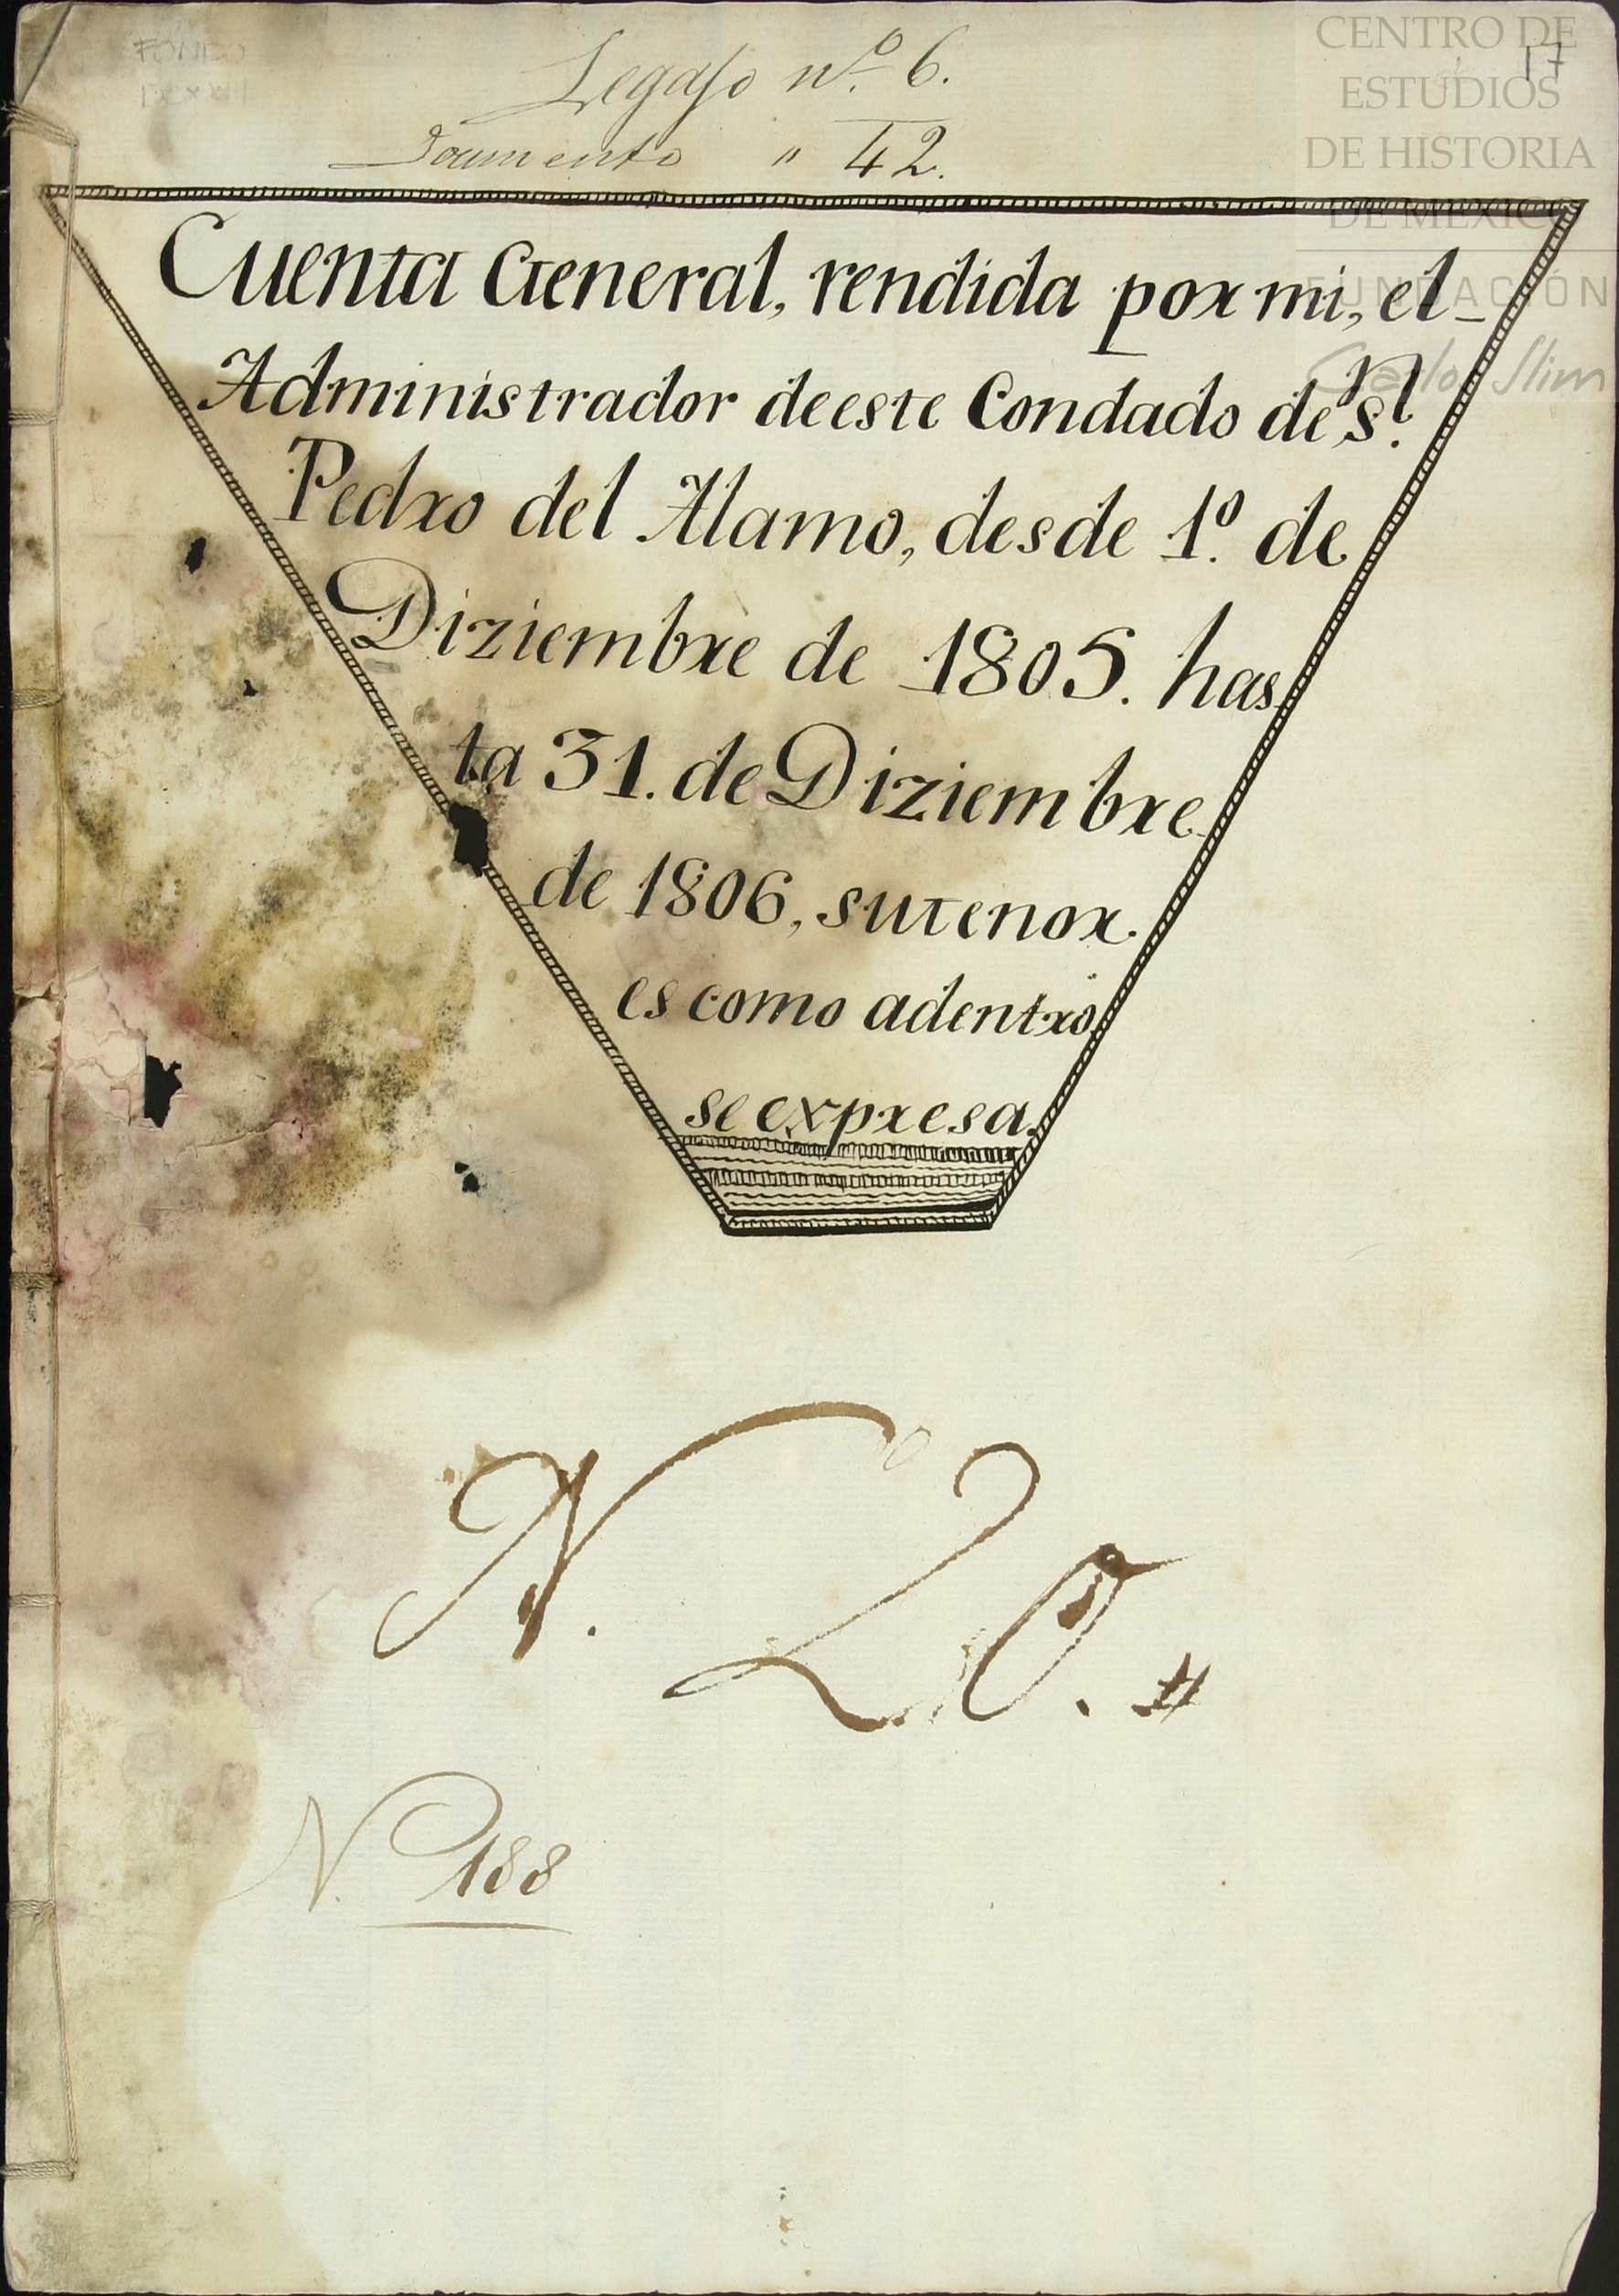 FONDO
17
CENTRO DE
ESTUDIOS
DE HISTORIA
DE MÉXICO
FUNDACIÓN
Carlos Slim
Legajo nº. 6.
Documento " 42.
Cuenta General, rendida por mi, el
Administrador de este Condado de Sn.
Pedro del Alamo, desde 1º. de
Diziembre de 1805. has
ta 31. de Diziembre
de 1806, su tenor
es como adentro
se expresa.
N. 20.
N. 188